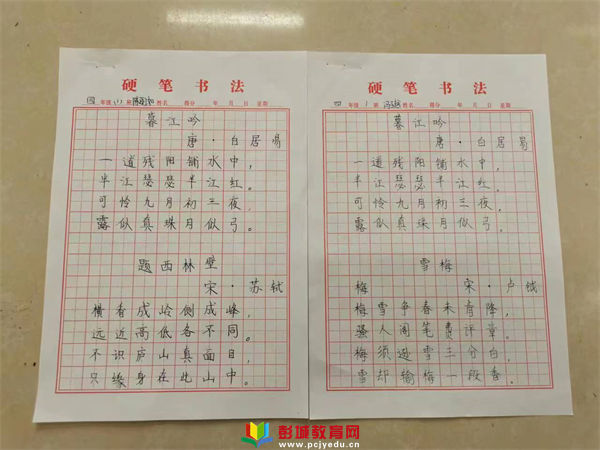 硬笔书法
四 年级 (1) 班 姓名 得分 年 月 日 星期
暮江吟
唐·白居易
一道残阳铺水中，
半江瑟瑟半江红。
可怜九月初三夜，
露似真珠月似弓。
题西林壁
宋·苏轼
横看成岭侧成峰，
远近高低各不同。
不识庐山真面目，
只缘身在此山中。
硬笔书法
四 年级 1 班 姓名 得分 年 月 日 星期
暮江吟
唐·白居易
一道残阳铺水中，
半江瑟瑟半江红。
可怜九月初三夜，
露似真珠月似弓。
雪梅
梅 宋·卢钺
梅雪争春未肯降，
骚人阁笔费评章。
梅须逊雪三分白，
雪却输梅一段香。
彭城教育网
www.pcjyedu.cn